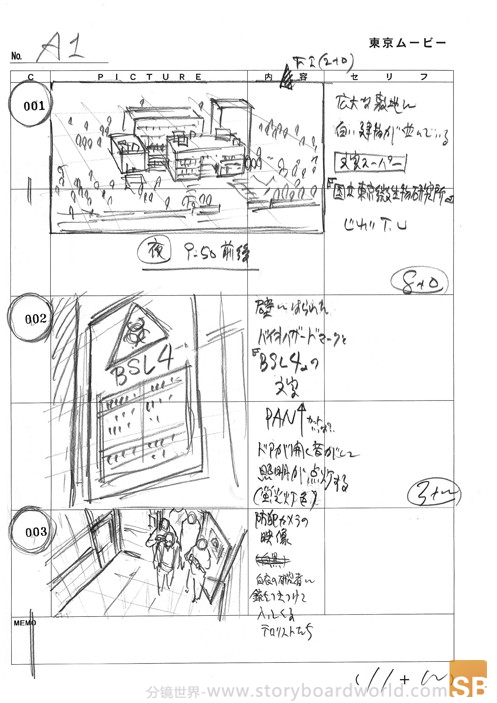 東京ムービー
No. A1
F.I (2+0)
C PICTURE 内容 セリフ
001
広大な敷地に
白い建物が並んでいる
文字スーパー
『国立東京微生物研究所』
じわT.U
夜 9:50前後
8+0
002
壁にはられた
バイオハザードマークと
『BSL4』の
文字
BSL4
PAN↑
ドアが開く音がして
照明が点灯する
(蛍光灯色)
3+
003
防犯カメラの
映像
白衣の研究者に
銃をつきつけて
入ってくる
テロリストたち
MEMO
(11+
分镜世界-www.storyboardworld.com
SB